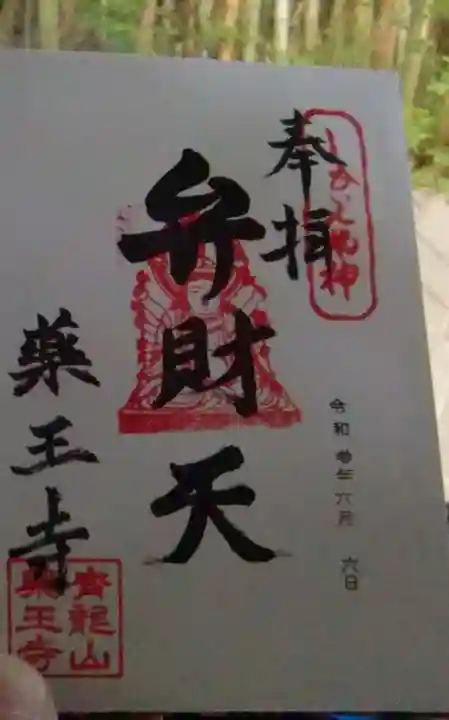 奉拝
弁財天
令和参年六月 六日
薬王寺
青龍山
薬王寺